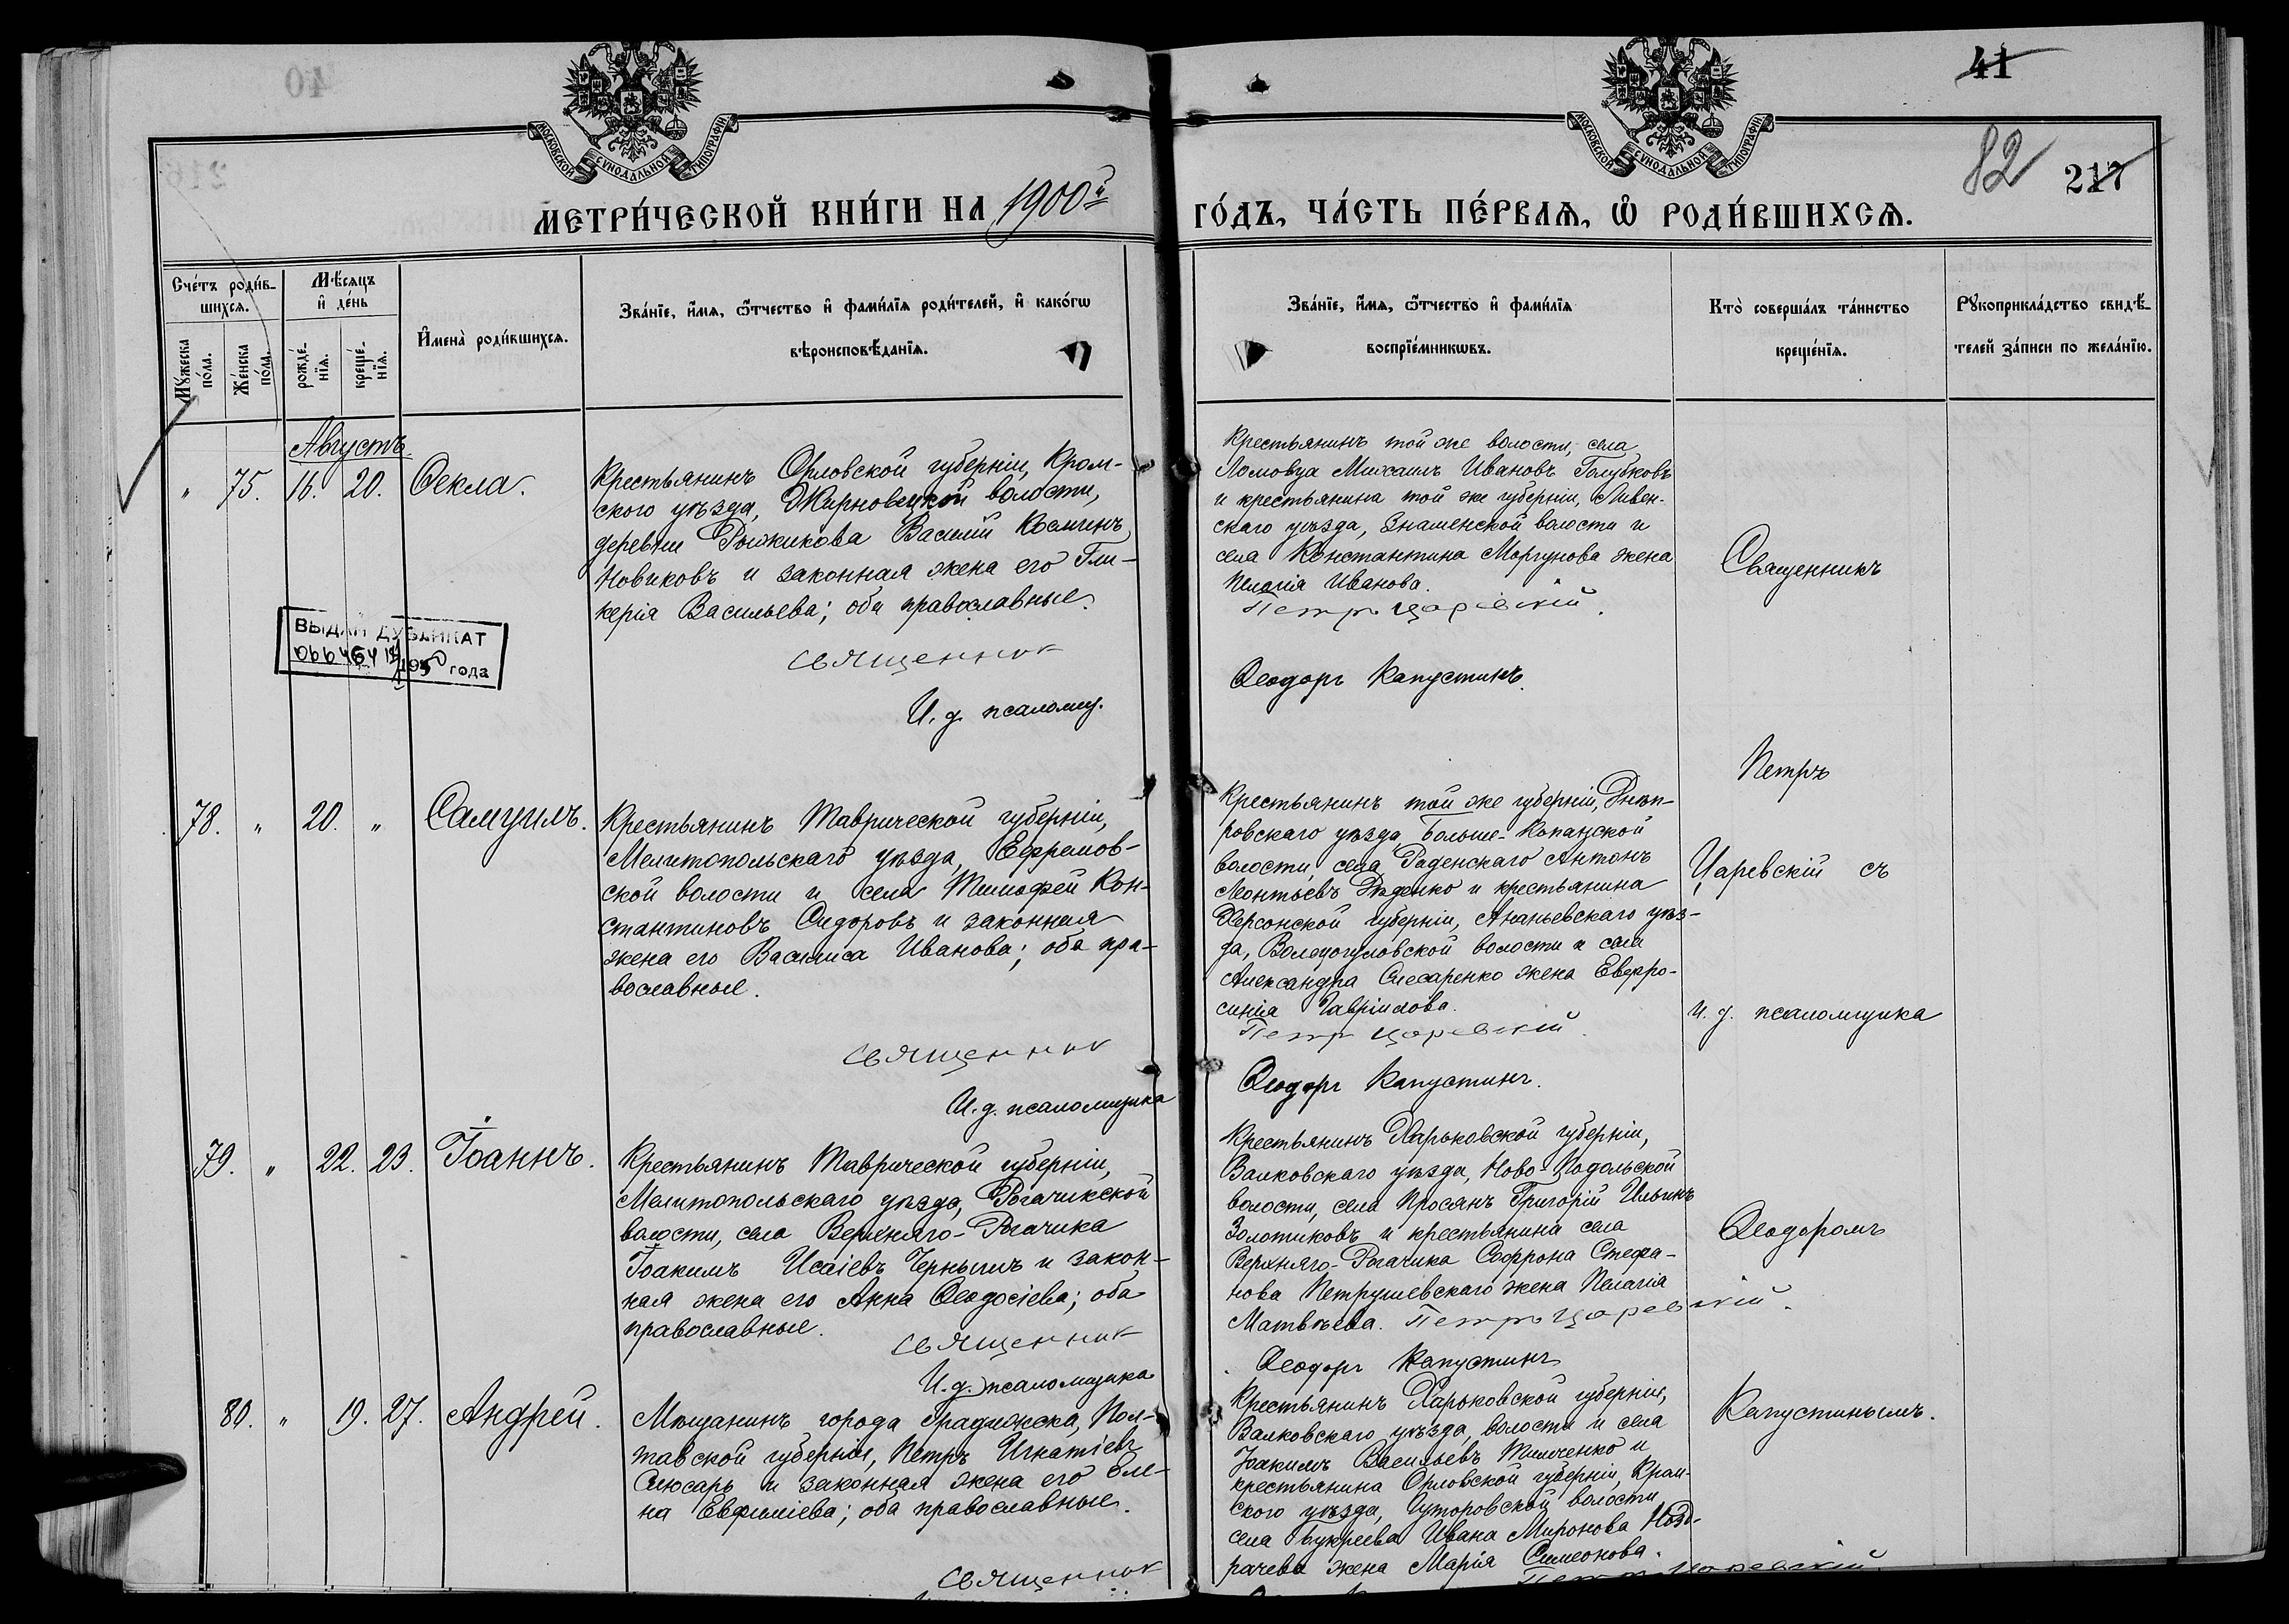 41
82 217
МОСКОВСКОЙ СѴНОДАЛЬНОЙ ТИПОГРАФІИ
МОСКОВСКОЙ СѴНОДАЛЬНОЙ ТИПОГРАФІИ
МЕТРИ́ЧЕСКОЙ КНИ́ГИ НА 1900й
ГО́ДЪ, ЧА́СТЬ ПЕ́РВАѦ, Ѡ РОДИ́ВШИХСѦ.
Сче́тъ роди́в-
шихсѧ.
Мꙋ́жеска
по́ла.
Же́нска
по́ла.
Мѣ́сѧцъ
и҆ де́нь
рожде́-
нїѧ.
креще́-
нїѧ.
И҆мена̀ роди́вшихсѧ.
Зва́нїе, и҆́мѧ, ѻ҆́тчество и҆ фами́лїѧ роди́телей, и҆ како́гѡ
вѣроисповѣ́данїѧ.
Зва́нїе, и҆́мѧ, ѻ҆́тчество и҆ фами́лїѧ
воспрїе́мникѡвъ.
Кто̀ соверша́лъ та́инство
креще́нїѧ.
Рꙋкоприкла́дство свидѣ́-
телей за́писи по жела́нїю.
Августъ.
" 75. 16. 20. Ѳекла.
Крестьянинъ Орловской губерніи, Кром-
ского уѣзда, Жирновецкой волости,
деревни Рыжикова Василій Космин
Новиковъ и законная жена его Гли-
керія Васильева; оба православные.
священник
И. д. псаломщ.
Крестьянинъ той же волости, села
Ломовца Михаилъ Ивановъ Голубковъ
и крестьянина той же губерніи, Ливен-
скаго уѣзда, Знаменской волости и
села Константина Моргунова жена
Пелагія Иванова.
Петръ Царевскій.
Ѳеодоръ Капустинъ.
Священникъ
ВЫДАН ДУБЛИКАТ
года
78. " 20. " Самуилъ.
Крестьянинъ Таврической губерніи,
Мелитопольскаго уѣзда, Ефремов-
ской волости и села Тимофей Кон-
стантиновъ Сидоровъ и законная
жена его Василиса Иванова; оба пра-
вославные.
священник
И. д. псаломщика
Крестьянинъ той же губерніи, Днѣп-
ровскаго уѣзда, Больше-Копанской
волости, села Раденскаго Антонъ
Леонтьевъ Дѣденко и крестьянина
Херсонской губерніи, Ананьевскаго уѣз-
да, волости и села
Александра Слесаренко жена Евфро-
синія Гавріилова.
Петръ Царевскій.
Ѳеодоръ Капустинъ.
Петръ
Царевскій съ
и. д. псаломщика
79. " 22. 23. Іоаннъ.
Крестьянинъ Таврической губерніи,
Мелитопольскаго уѣзда, Рогачикской
волости, села Верхняго-Рогачика
Іоакимъ Исаіевъ Чернышъ и закон-
ная жена его Анна Ѳеодосіева; оба
православные.
священник
И. д. псаломщика
Крестьянинъ Харьковской губерніи,
Валковскаго уѣзда, Ново-Водолжской
волости, села Просянъ Григорій Ильинъ
Золотиковъ и крестьянина села
Верхняго-Рогачика Софрона Стефа-
нова Петрушевскаго жена Пелагія
Матвѣева. Петръ Царевскій.
Ѳеодоръ Капустинъ
Ѳеодоромъ
80. " 19. 27. Андрей.
Мѣщанинъ города Градижска, Пол-
тавской губерніи, Петръ Игнатіевъ
Слюсарь и законная жена его Еле-
на Евфиміева; оба православные.
священник
Крестьянинъ Харьковской губерніи,
Валковскаго уѣзда, волости и села
Іоакимъ Васильевъ Тимченко и
крестьянина Орловской губерніи, Кром-
ского уѣзда, волости
села Букреева Ивана Миронова Нозд-
рачева жена Марія Симеонова.
Петръ Царевскій
Капустинымъ.